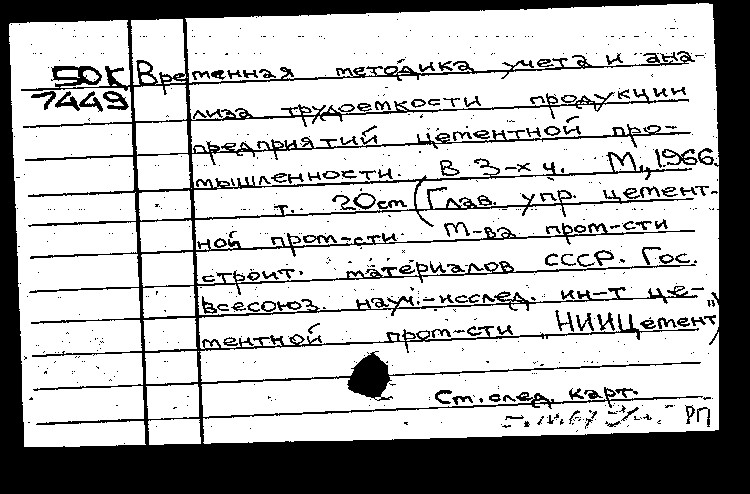 50К Временная методика учета и ана-
7449 лиза трудоемкости продукции
предприятий цементной про-
мышленности. В 3-х ч. М., 1966.
т. 20см (Глав. упр. цемент-
ной пром-сти М-ва пром-сти
строит. материалов СССР. Гос.
всесоюз. науч.-исслед. ин-т це-
ментной пром-сти „НИИЦемент”)
См. след. карт.
РП